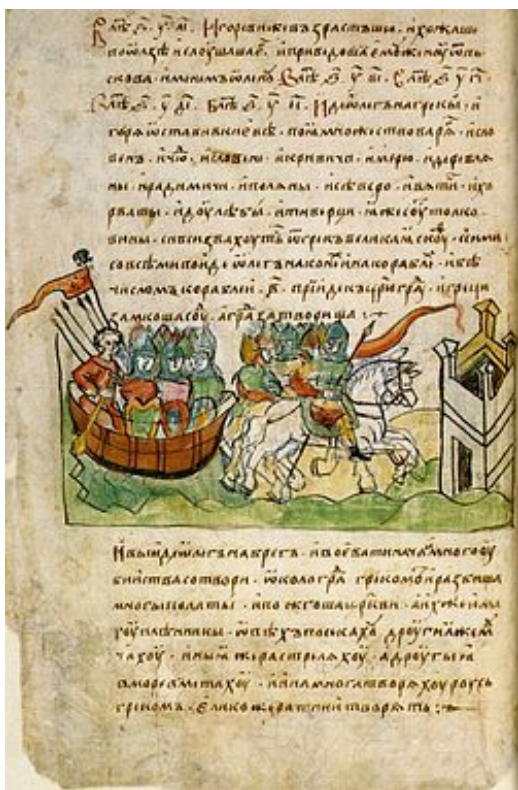 В лѣⷮ . ҂ѕ҃ . у҃ . а҃і . Игореви же възрастъшю . и хожаше
по ѡлзѣ и слоушаше . и приведоша ємоу женоу ѿ пь
скова . именемъ ѡленоу В лѣⷮ . ҂ѕ҃ . у҃ . в҃і . В лѣⷮ . ҂ѕ҃ . у҃ . г҃і .
В лѣⷮ . ҂ѕ҃ . у҃ . д҃і . В лѣⷮ . ҂ѕ҃ . у҃ . е҃і . Иде ѡлегъ на грекы . и
горѧ ѡставив в киевѣ . поꙗ множество варѧ . и сло
венъ . и чюⷣ . и словени . и кривичи . и мерю . и деревлѧ
ны . и радимичи . и полѧны . и сѣверо . и вѧтичи . и хо
рваты . и доулѣбы . и тиверци . ꙗже соуⷮ толко
вины . си вси звахоуть ѿ грекъ великаꙗ скоуⷴ . с сими
со всѣми поиде ѡлегъ на конѣ и на кораблѣ . и бѣ
числомъ кораблеи . в҃ . прииде къ црюграⷣ . и греци
замкоша соуⷣ . а граⷣ затвориша
И выиде ѡлегъ на брегъ . и воевати нача . и много оу
бииства сотвори . ѡколо граⷣ грекомъ и разбиша
многы полаты . и пожгоша церкви . а ихже има
хоу плѣнникы . ѡвѣхъ посѣкахоу дроугиа же моу
чахоу . иныа же растрелѧхоу . а дроугыꙗ
в море вметахоу . и ина многа творѧхоу роусь
грекомъ . єлико же ратнии творѧть